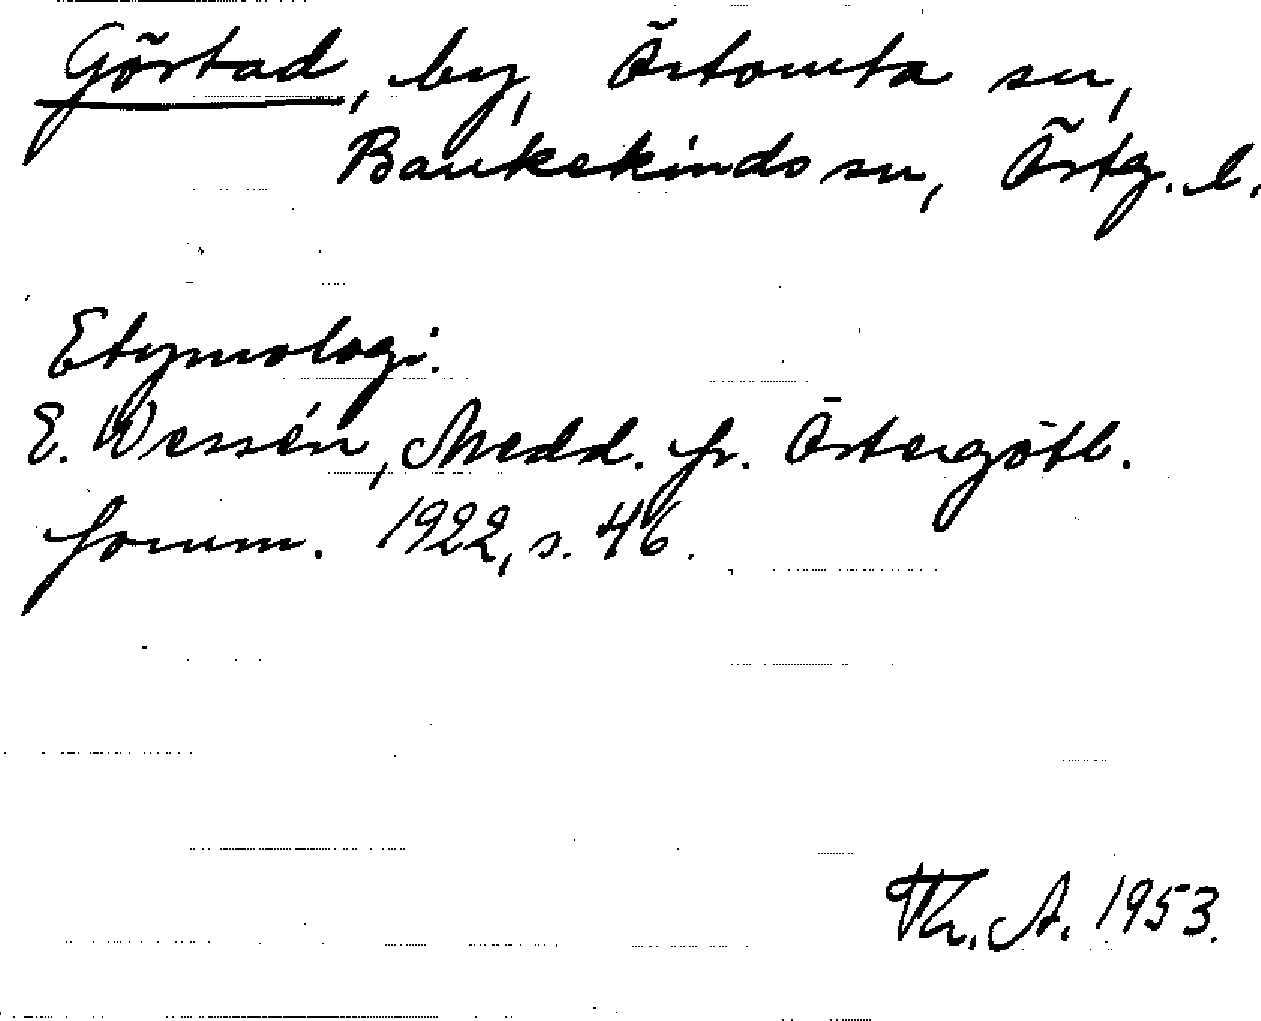 Görstad, by, Örtomta sn,
Bankekinds sn, Östg. l.
Etymologi.
E. Wessén, Medd. fr. Östergötl.
fornm. 1922, s. 46.
Th. A. 1953.